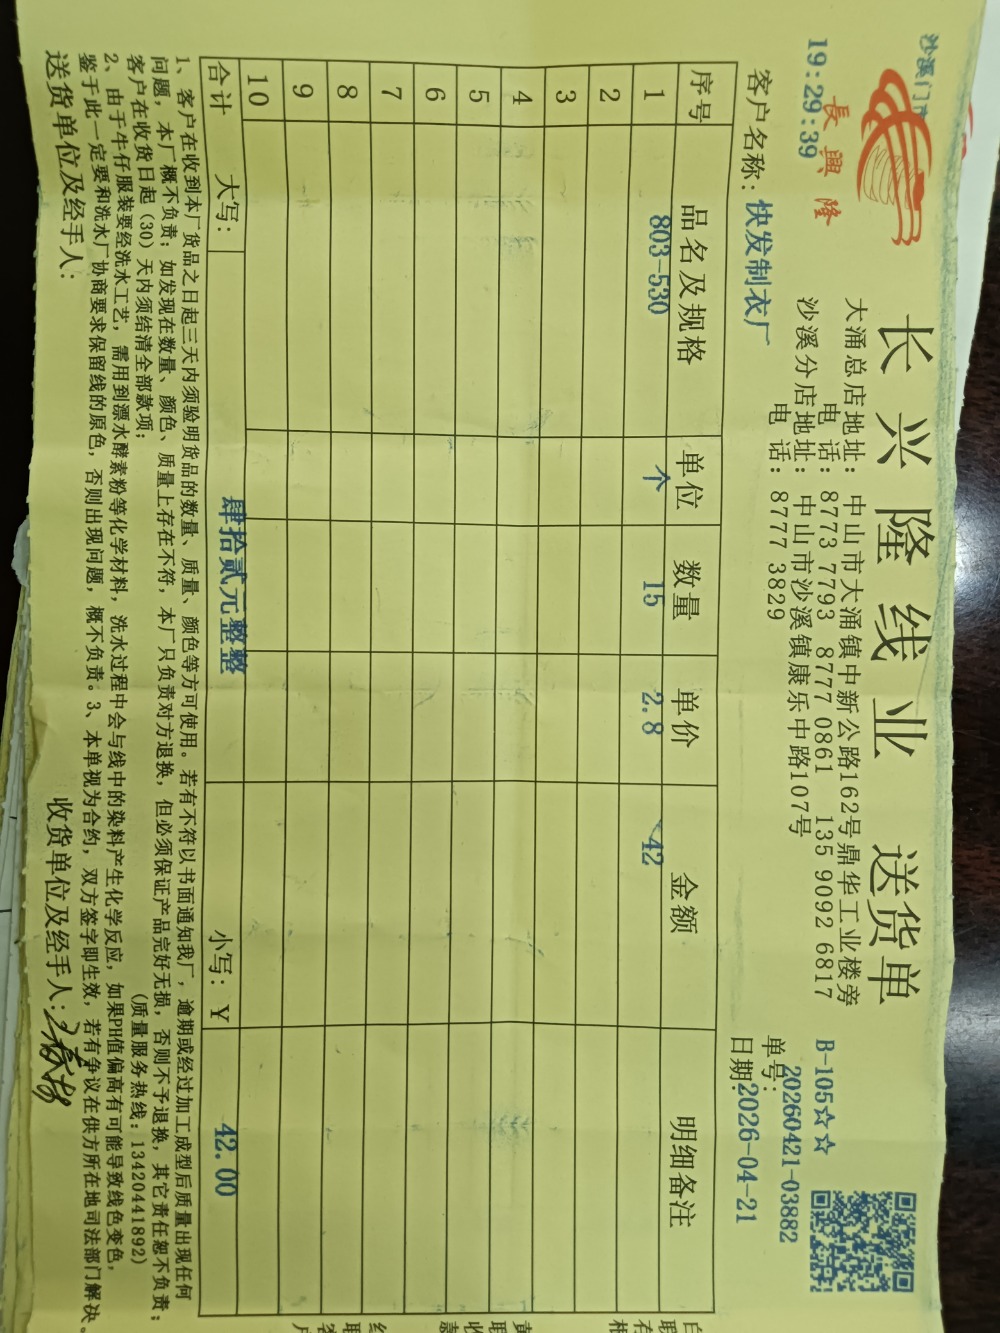 沙溪门市
長興隆
19:29:39
长兴隆线业 送货单
大涌总店地址：中山市大涌镇中新公路162号鼎华工业楼旁
电 话：8773 7793 8777 0861 135 9092 6817
沙溪分店地址：中山市沙溪镇康乐中路107号
电 话：8777 3829
B-105☆☆
单号：20260421-03882
客户名称：快发制衣厂
日期：2026-04-21
序号 品名及规格 单位 数量 单价 金额 明细备注
1 803-530 个 15 2.8 42
2
3
4
5
6
7
8
9
10
合计 大写： 肆拾贰元整整 小写：￥ 42.00
1、客户在收到本厂货品之日起三天内须验明货品的数量、质量、颜色等方可使用。若有不符以书面通知我厂，逾期或经过加工成型后质量出现任何
问题，本厂概不负责；如发现在数量、颜色、质量上存在不符，本厂只负责对方退换，但必须保证产品完好无损，否则不予退换，其它责任恕不负责；
客户在收货日起（30）天内须结清全部款项； （质量服务热线：13420441892）
2、由于牛仔服装要经洗水工艺，需用到漂水酵素粉等化学材料，洗水过程中会与线中的染料产生化学反应，如果PH值偏高有可能导致线色变色，
鉴于此一定要和洗水厂协商要求保留线的原色，否则出现问题，概不负责。3、本单视为合约，双方签字即生效，若有争议在供方所在地司法部门解决。
送货单位及经手人： 收货单位及经手人：